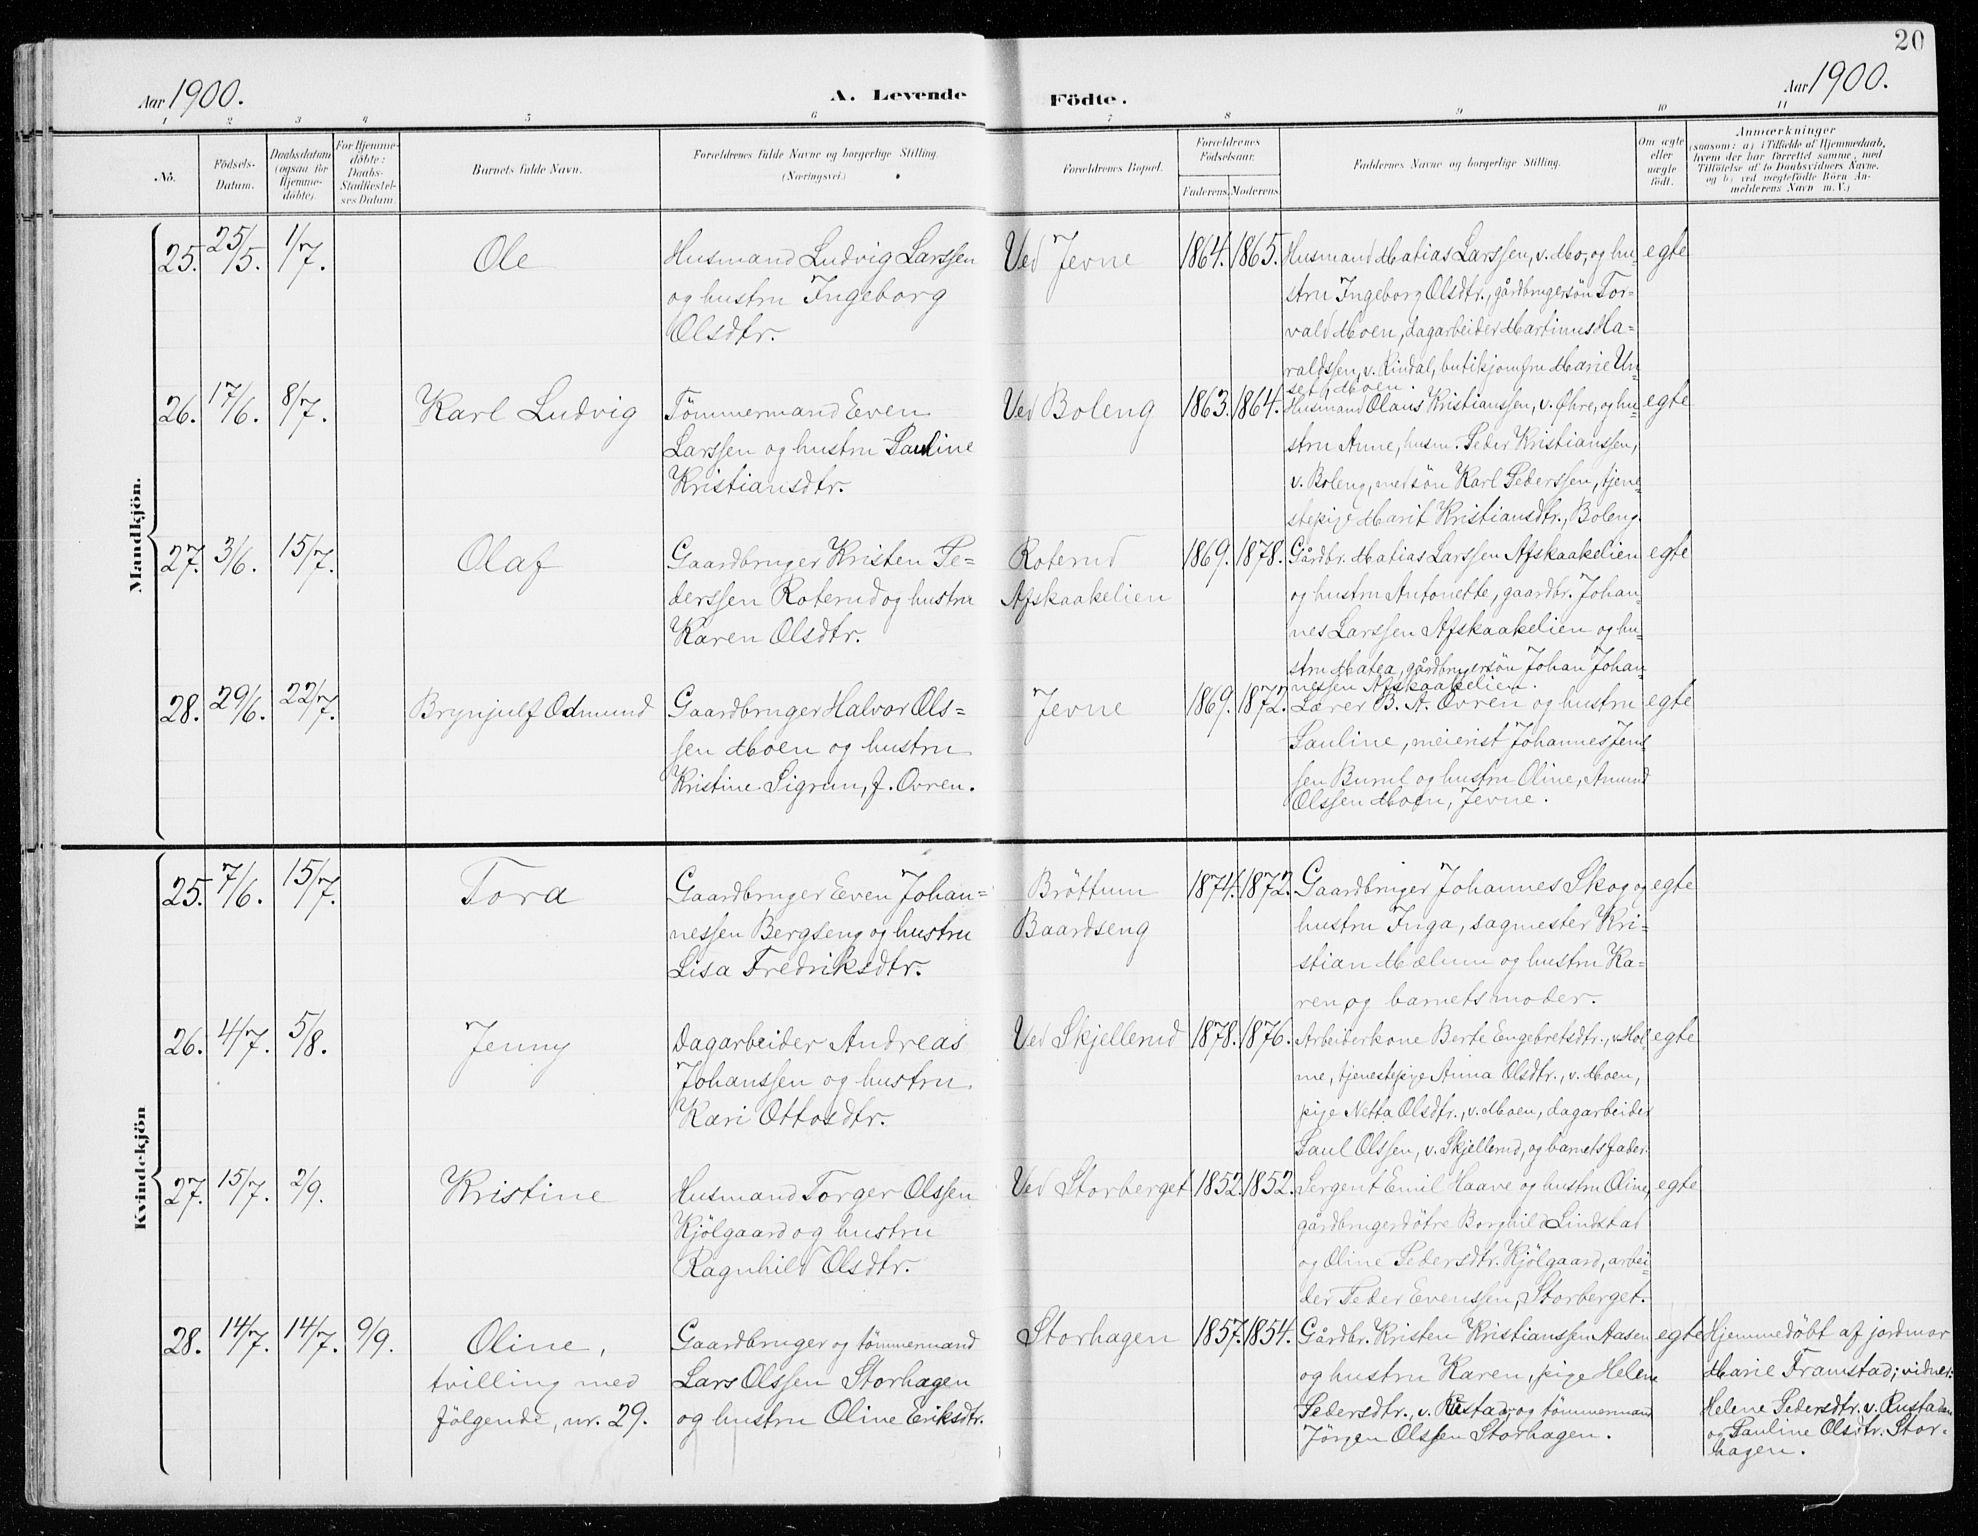 20
Aar 1900.
A. Levende Födte.
Aar 1900.
1 2 3 4 5 6 7 8 9 10 11
No.
Födsels-
Datum.
Daabsdatum
(ogsaa for
Hjemme-
döbte).
For Hjemme-
döbte:
Daabs-
Stadfæstel-
ses Datum.
Barnets fulde Navn.
Forældrenes fulde Navne og borgerlige Stilling
(Næringsvei.)
Forældrenes Bopæl.
Forældrenes
Födselsaar.
Faderens. Moderens.
Faddernes Navne og borgerlige Stilling.
Om ægte
eller
uægte
födt.
Anmærkninger
(saasom: a) i Tilfælde af Hjemmedaab,
hvem der har forrettet samme, med
Tilföielse af to Daabsvidners Navne.
og b) ved uægtefödte Börn An-
melderens Navn m. V.)
Mandkjön.
25. 25/5. 1/7.
Ole
Husmand Ludvig Larssen
og hustru Ingeborg
Olsdtr.
Ved Jevne
1864. 1865.
Husmand Matias Larssen, v. Mo, og hu-
stru Ingeborg Olsdtr., gårdbrugersön Tor-
vald Moen, dagarbeider Martinus Ha-
raldssen, v. Rindal, butikjomfru Marie Un-
set, Moen.
egte
26. 17/6. 8/7.
Karl Ludvig
Tömmermand Even
Larssen og hustru Pauline
Kristiansdtr.
Ved Boleng
1863. 1864.
Husmand Olaus Kristianssen, v. Øhre, og hu-
stru Anne, husm. Peder Kristianssen,
v. Boleng, med sön Karl Pederssen, tjene-
stepige Marit Kristiansdtr., Boleng.
egte
27. 3/6. 15/7.
Olaf
Gaardbruger Kristen Pe-
derssen Roterud og hustru
Karen Olsdtr.
Roterud
Afskaakelien
1869. 1878.
Gårdbr. Matias Larssen Afskaakelien
og hustru Antonette, gaardbr. Johan-
nes Larssen Afskaakelien og hu-
stru Matea, gårdbrugersön Johan Johan-
nessen Afskaakelien.
egte
28. 29/6. 22/7.
Brynjulf Odmund
Gaardbruger Halvor Ols-
sen Moen og hustru
Kristine Sigrun, f. Ovren.
Jevne
1869. 1872.
Lærer B. A. Ovren og hustru
Pauline, meierist Johannes Jens-
sen Burul og hustru Oline, Amund
Olssen Moen, Jevne.
egte
Kvindekjön
25. 7/6. 15/7.
Tora
Gaardbruger Even Johan-
nessen Bergseng og hustru
Lisa Fredriksdtr.
Bröttum
Baardseng
1874. 1872.
Gaardbruger Johannes Skog og
hustru Inga, sagmester Kri-
stian Mælum og hustru Ka-
ren og barnets moder.
egte
26. 4/7. 5/8.
Jenny
Dagarbeider Andreas
Johanssen og hustru
Kari Ottosdtr.
Ved Skjellerud
1878. 1876.
Arbeiderkone Berte Engebretsdtr., v. Hol-
me, tjenestepige Anna Olsdtr., v. Moen,
pige Netta Olsdtr., v. Moen, dagarbeider
Paul Olssen, v. Skjellerud, og barnets fader.
egte
27. 15/7. 2/9.
Kristine
Husmand Torger Olssen
Kjölgaard og hustru
Ragnhild Olsdtr.
Ved Storberget
1852. 1852.
Sergent Emil Haave og hustru Oline,
gårdbrugerdötre Borghild Lindstad
og Oline Pedersdtr. Kjölgaard, arbei-
der Peder Evenssen, Storberget.
egte
28. 14/7. 14/7. 9/9.
Oline,
tvilling med
fölgende, nr. 29.
Gaardbruger og tömmermand
Lars Olssen Storhagen
og hustru Oline Eriksdtr.
Storhagen
1857. 1854.
Gårdbr. Kristen Kristianssen Aasen
og hustru Karen, pige Helene
Pedersdtr., v. Rustad, og tömmermand
Jörgen Olssen Storhagen.
egte
Hjemmedöbt af jordmor
Marie Framstad; vidner:
Helene Pedersdtr. v. Rustaden
og Pauline Olsdtr. Stor-
hagen.